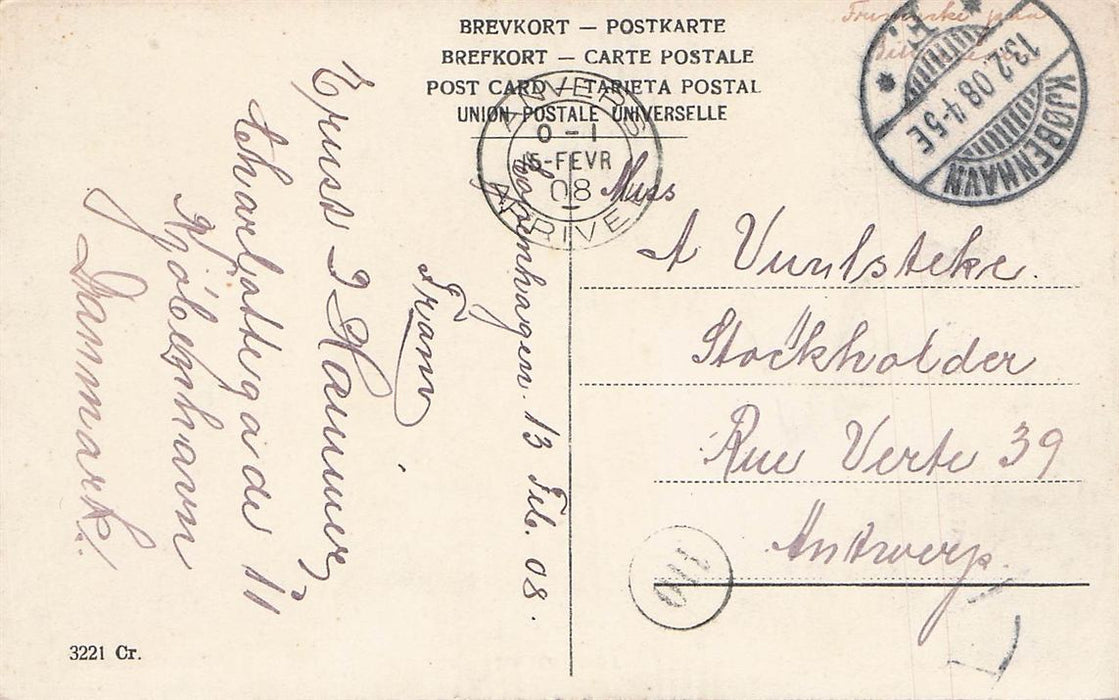 BREVKORT — POSTKARTE
BREFKORT — CARTE POSTALE
POST CARD — TARJETA POSTAL
UNION POSTALE UNIVERSELLE
ANVERS
0 – 1
15-FEVR
08
ARRIVEE
KJØBENHAVN
13.2.08.4-5E
Kopenhagen. 13 Feb. 08.
From
Ernst J Hammer,
Charlottegade 11
Kjöbenhavn
Danmark.
Miss
A Vuulsteke.
Stockholder
Rue Verte 39
Antwerp.
110
3221 Cr.